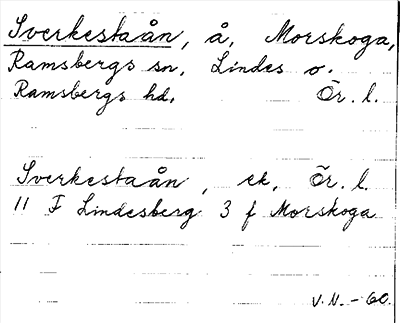 Sverkestaån, å, Morskoga,
Ramsbergs sn, Lindes o.
Ramsbergs hd, Ör. l.
Sverkestaån, ek, Ör. l.
11 F Lindesberg 3 f Morskoga
V.N. - 60.